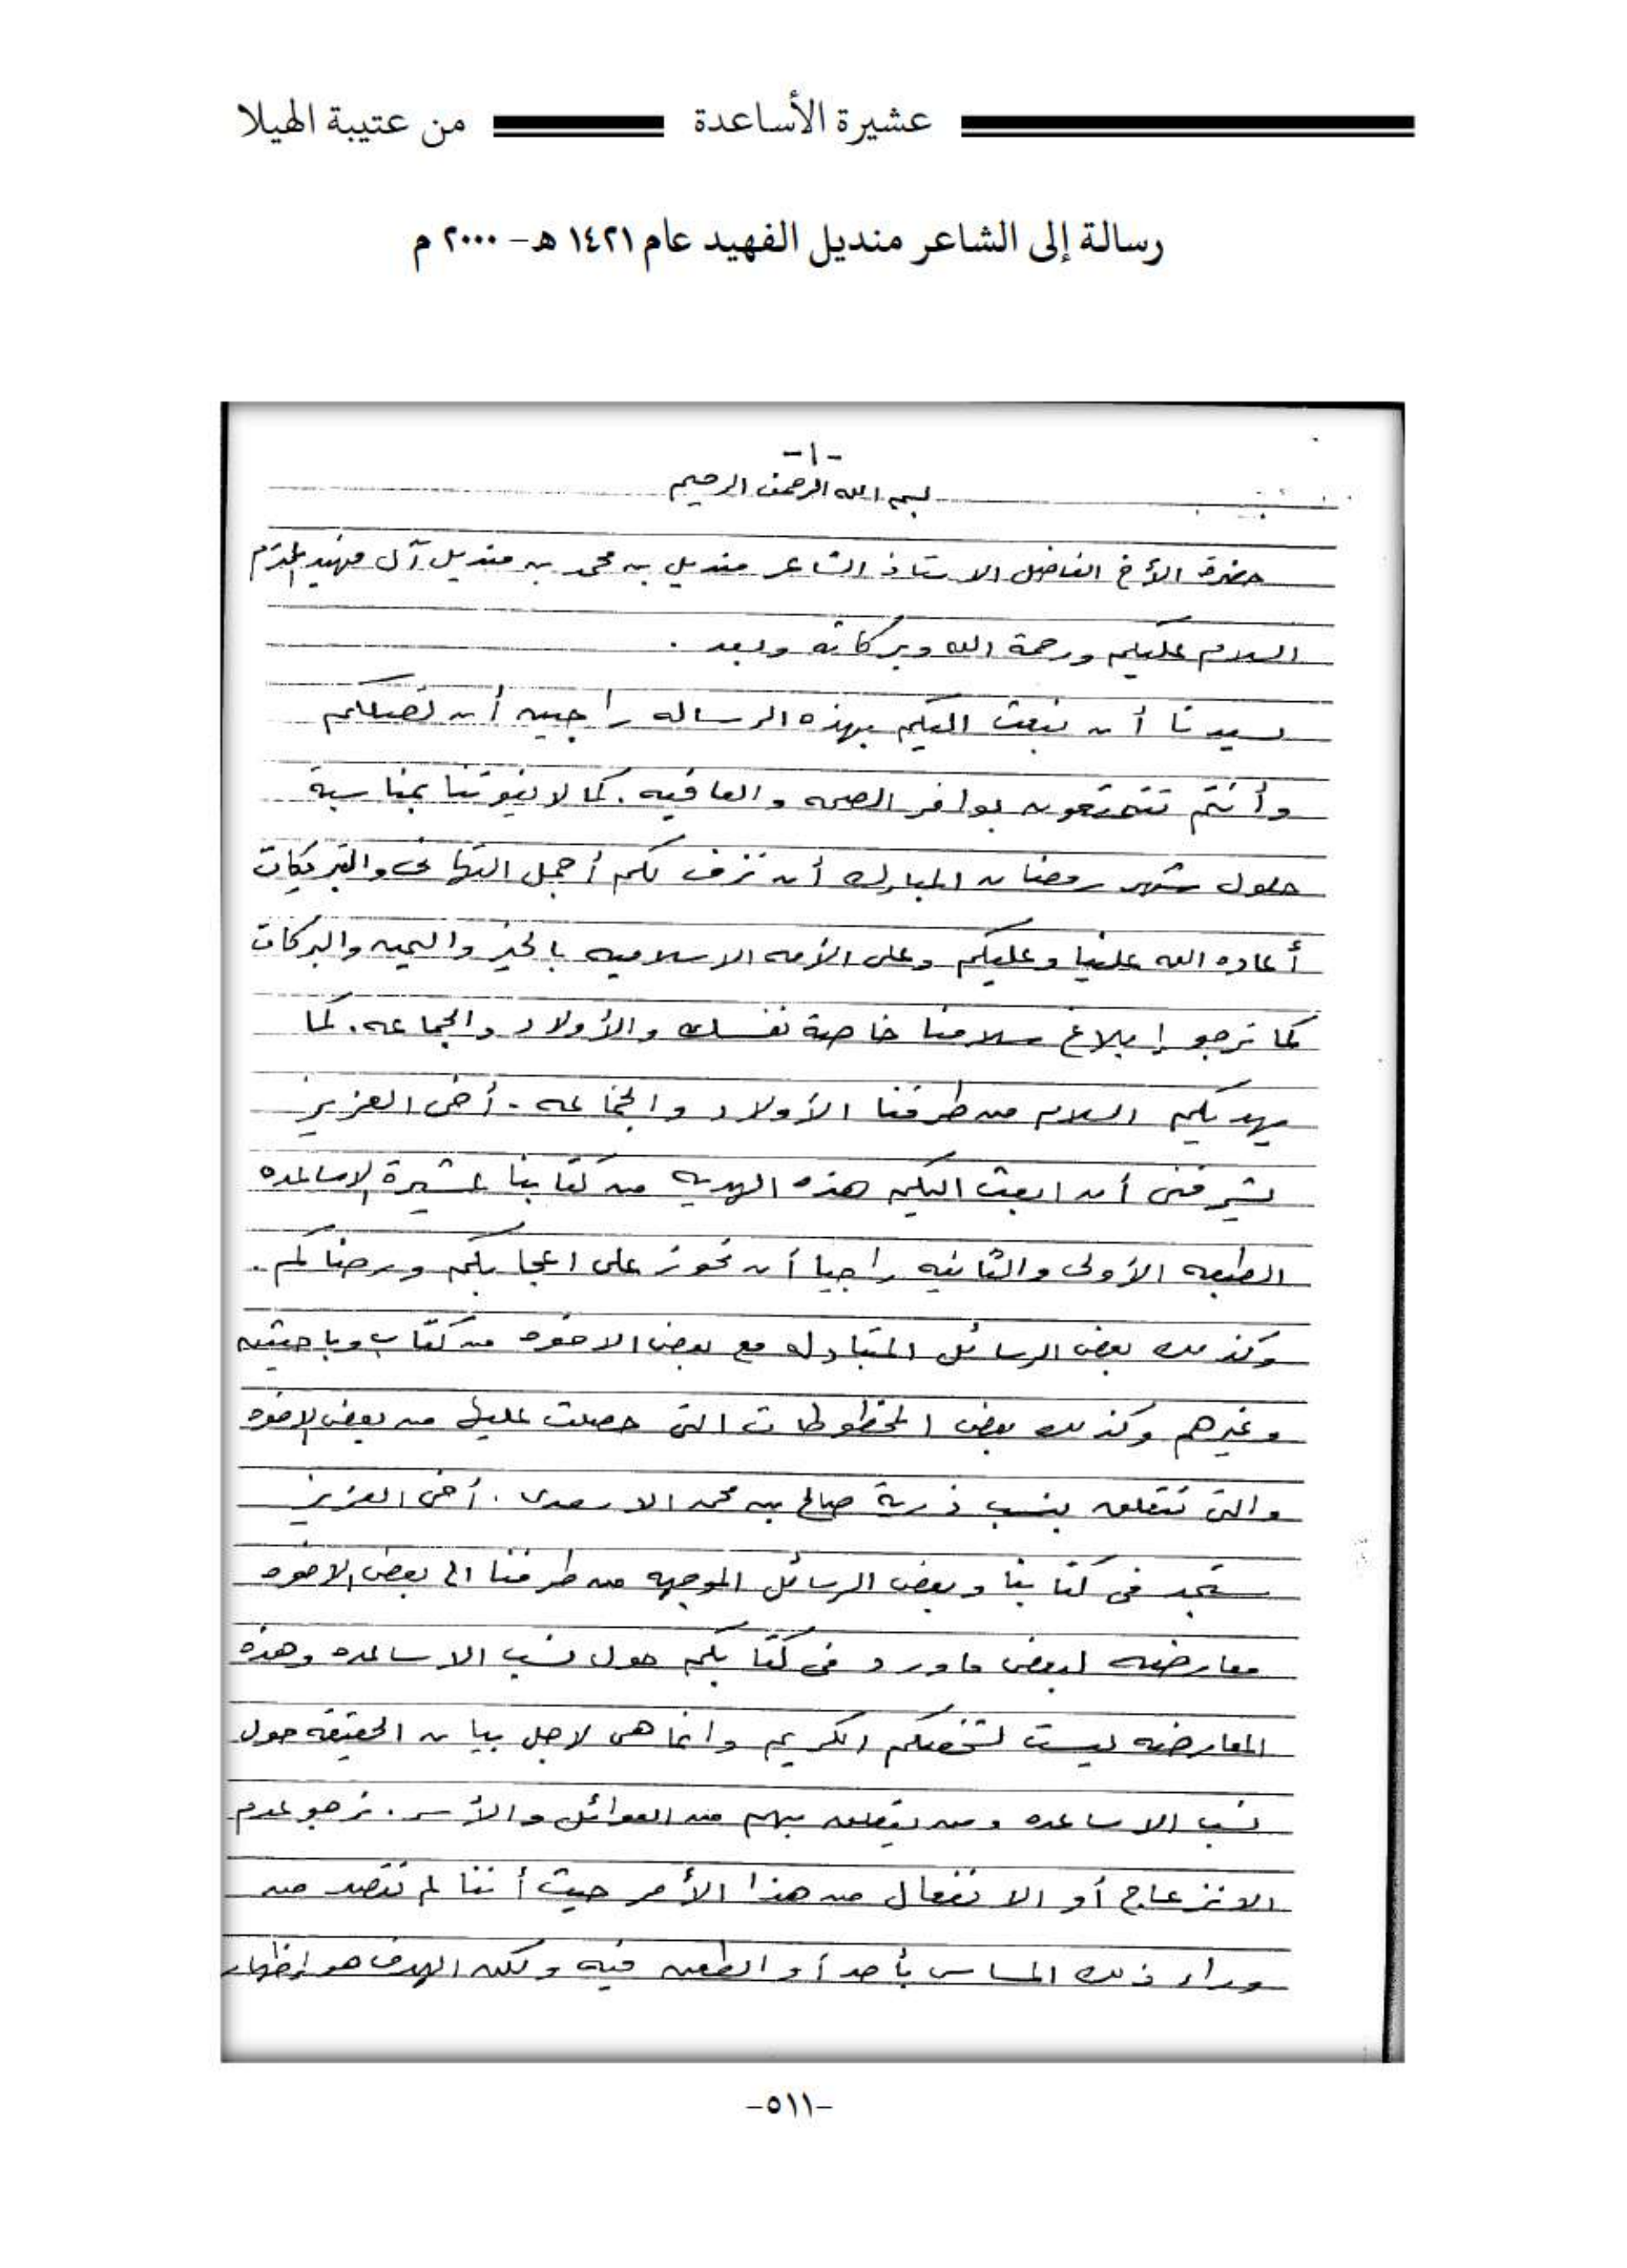 عشيرة الأساعدة من عتيبة الهيلا
رسالة إلى الشاعر منديل الفهيد عام ١٤٢١ هـ - ٢٠٠٠ م
-١-
بسم الله الرحمن الرحيم
حضرة الأخ الفاضل الاستاذ الشاعر منديل بن محمد بن منديل آل فهيد المحترم
السلام عليكم ورحمة الله وبركاته وبعد .
يسعدنا أن نبعث اليكم بهذه الرساله راجين أن تصلكم
وأنتم تتمتعون بوافر الصحه والعافيه . كما لا يفوتنا بمناسبة
حلول شهر رمضان المبارك أن نزف لكم أجمل التهاني والتبريكات
أعاده الله علينا وعليكم وعلى الأمه الاسلاميه بالخير واليمن والبركات
كما نرجو إبلاغ سلامنا خاصة نفسك والأولاد والجماعه . كما
يهديكم السلام من طرفنا الأولاد والجماعه . أخي العزيز
يشرفني أن ابعث اليكم هذه الهديه من كتابنا عشيرة الاساعده
الطبعه الأولى والثانيه راجيا أن تحوز على اعجابكم ورضاكم .
وكذلك بعض الرسائل المتبادله مع بعض الاخوه من كتاب وباحثين
وغيرهم وكذلك بعض المخطوطات التي حصلت عليها من بعض الاخوه
والتي تتعلق بنسب ذرية صالح بن محمد الاسعدي . أخي العزيز
ستجد في كتابنا وبعض الرسائل الموجهه من طرفنا الى بعض الاخوه
معارضه لبعض ماورد في كتابكم حول نسب الاساعده وهذه
المعارضه ليست لشخصكم الكريم وانما هي لاجل بيان الحقيقه حول
نسب الاساعده ومن يتعلق بهم من العوائل والأسر . نرجو عدم
الانزعاج أو الانفعال من هذا الأمر حيث أننا لم نقصد من
وراء ذلك المساس بأحد أو الطعن فيه ولكن الهدف هو إظهار
-٥١١-